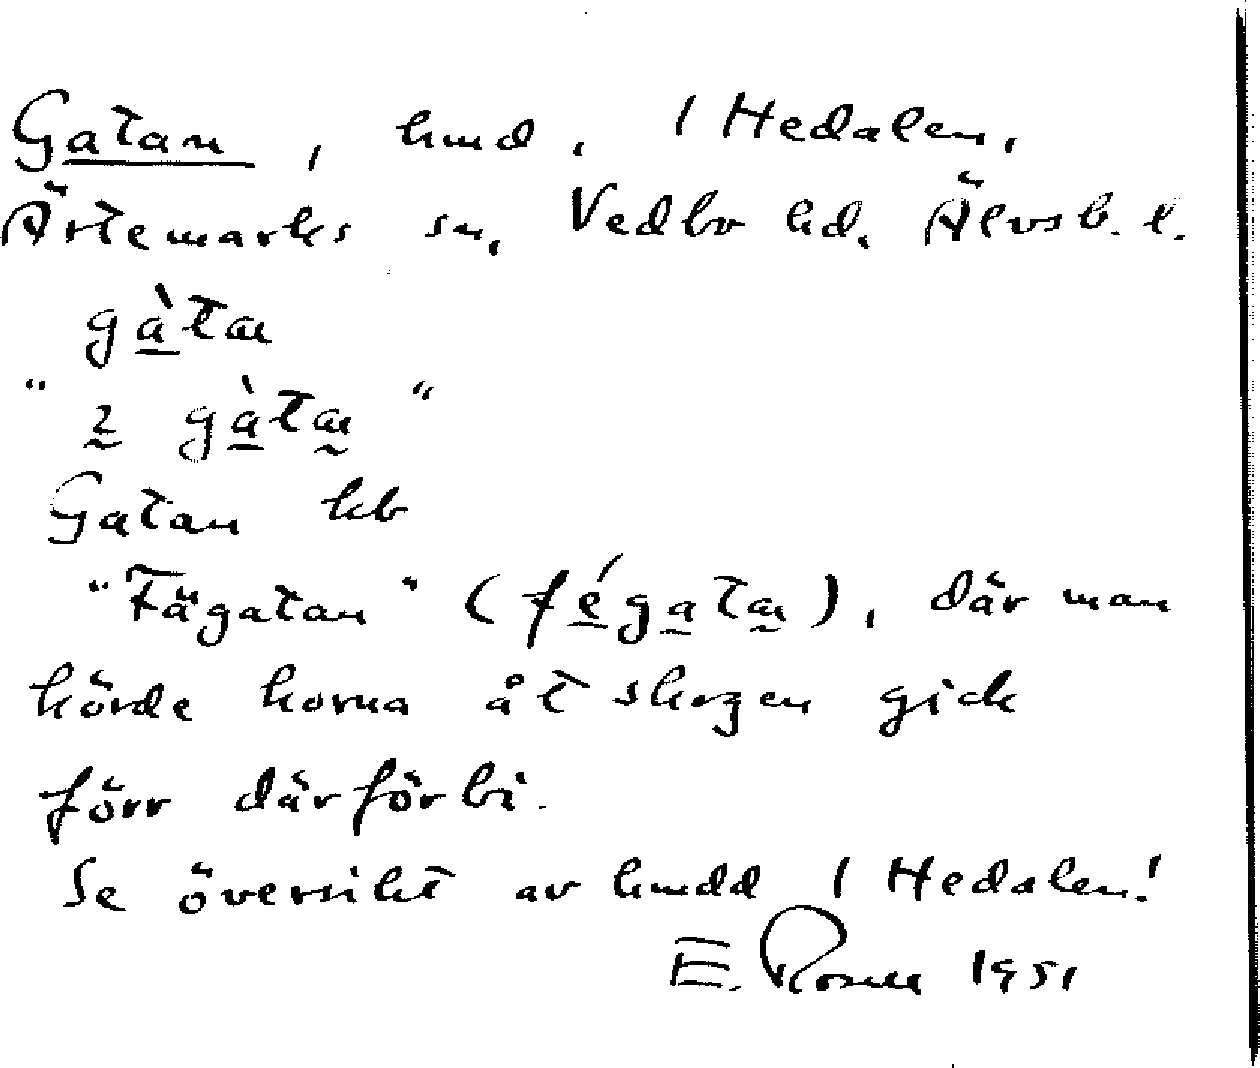 Gatan, hmd, 1 Hedalen,
Ärtemarks sn, Vedbo hd. Älvsb. l.
gàtaɴ
"2 gàtaɴ"
Gatan kb
"Fägatan" (fégataɴ), där man
hörde korna åt skogen gick
förr därförbi.
Se översikt av hmdd 1 Hedalen!
E. Rosell 1951